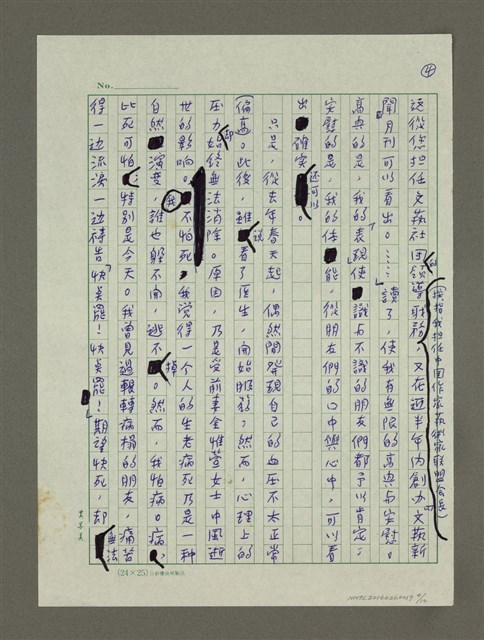 ④
No.
這從您担任文藝社團的領導職務，又在近半年內創办文藝新
（按指我担任中国作家藝術家联盟会長）
聞月刊可以看出。……」讀了，使我有無限的高興与安慰。
高興的是，我的表現使識与不識的朋友們都予以肯定，
安慰的是，我的体能，從朋友們的口中與心中，可以看
出確实还可以。
只是，從去年春天起，偶然間發現自己的血压不太正常
（偏高）。此後，雖說看了医生，開始服药，然而，心理上的
压力却始終無法消除。原因，乃是受前妻金惟萱女士中風逝
世的影响。我不怕死，我覚得一个人的生老病死乃是一种
自然演变，誰也躲不開，逃不掉。然而，我怕病。病，
比死可怕，特別是今天。我曾見過輾轉病榻的朋友，痛苦
得一边流淚一边祷告「快点罷！快点罷！」期望快死，却無法
(24×25)
NMTL20160260019